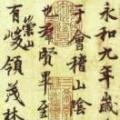 永和九年歲
于會稽山陰
也群賢畢至
崇山
有峻領茂林